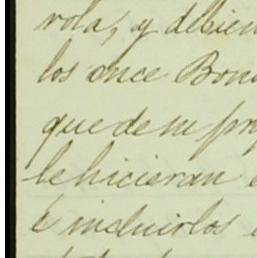 rola, y debien
los once Bon
que de su pro
le hicieran
é incluirlos